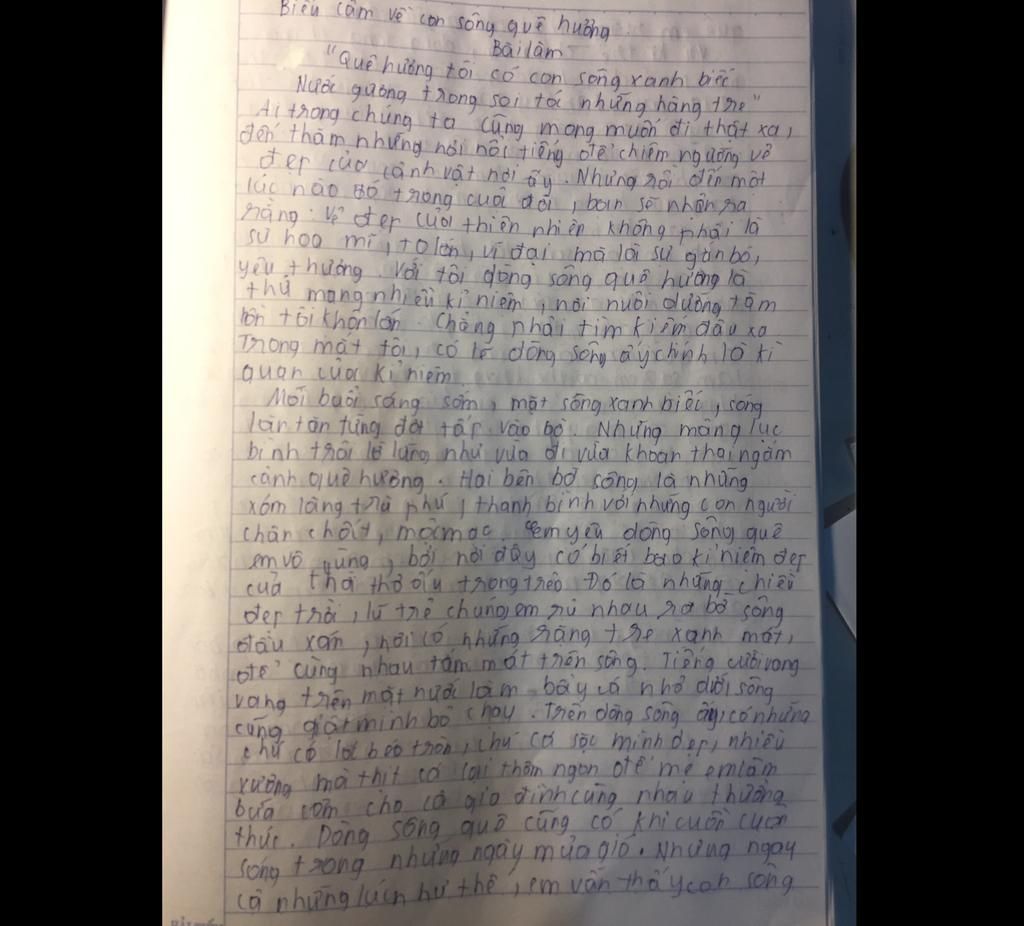 Biểu cảm về con sông quê hương.
Bài làm
"Quê hương tôi có con sông xanh biếc
Nước gương trong soi tóc những hàng tre"
Ai trong chúng ta cũng mong muốn đi thật xa,
đến thăm những nơi nổi tiếng để chiêm ngưỡng vẻ
đẹp của cảnh vật nơi ấy. Nhưng rồi đến một
lúc nào đó trong cuộc đời, bạn sẽ nhận ra
rằng: vẻ đẹp của thiên nhiên không phải là
sự hoa mĩ, to lớn, vĩ đại mà là sự gắn bó,
yêu thương. Với tôi dòng sông quê hương là
thứ mang nhiều kỉ niệm, nơi nuôi dưỡng tâm
hồn tôi khôn lớn. Chẳng phải tìm kiếm đâu xa
Trong mắt tôi, có lẽ dòng sông ấy chính là kì
quan của kỉ niệm.
Mỗi buổi sáng sớm, mặt sông xanh biếc, sóng
lăn tăn từng đợt tấp vào bờ. Những mảng lục
bình trôi lơ lửng như vừa đi vừa khoan thai ngắm
cảnh quê hương. Hai bên bờ sông là những
xóm làng trù phú, thanh bình với những con người
chân chất, mộc mạc. em yêu dòng sông quê
em vô cùng, bởi nơi đây có biết bao kỉ niệm đẹp
của thời thơ ấu trong trẻo. Đó là những chiều
đẹp trời, lũ trẻ chúng em rủ nhau ra bờ sông
đầu xóm, nơi có những rặng tre xanh mát,
để cùng nhau tắm mát trên sông. Tiếng cười vang
vang trên mặt nước làm bầy cá nhỏ dưới sông
cũng giật mình bỏ chạy. Trên dòng sông ấy, có những
chú cá lóc béo tròn, chú cá sặc mình dẹp, nhiều
xương mà thịt có lại thơm ngon để mẹ em làm
bữa cơm cho cả gia đình cùng nhau thưởng
thức. Dòng sông quê cũng có khi cuồn cuộn
sóng trong những ngày mưa gió. Nhưng ngay
cả những lúc như thế, em vẫn thấy con sông